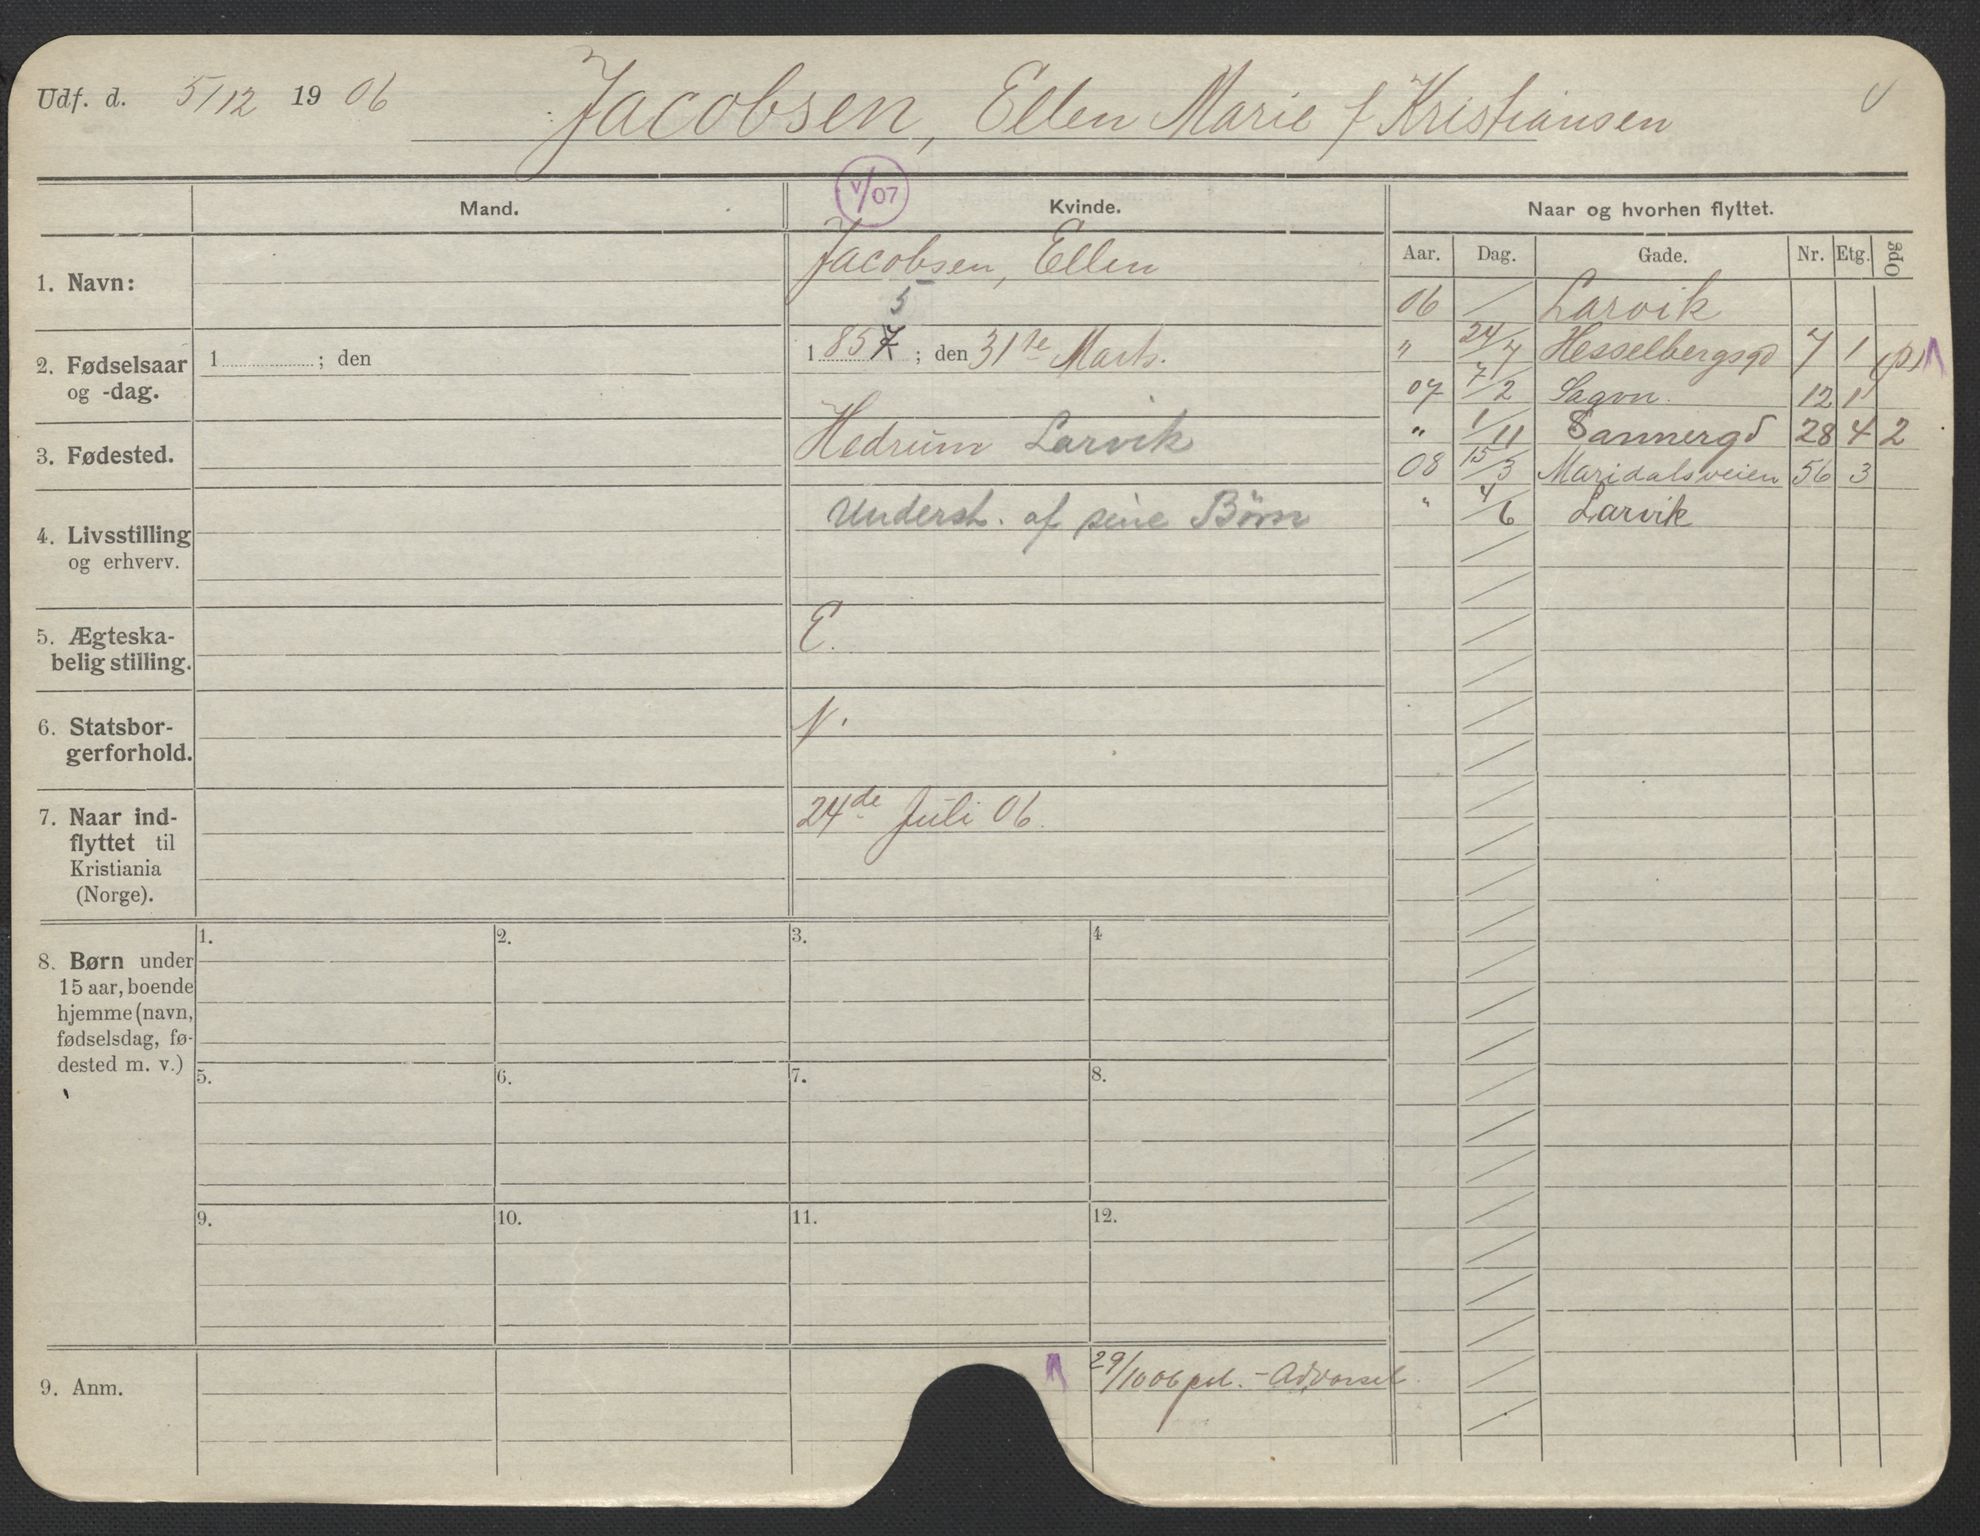 Udf. d. 5/12 1906 Jacobsen, Ellen Marie f Kristiansen
V/07
Mand.
Kvinde.
Naar og hvorhen flyttet.
Aar. Dag. Gade. Nr. Etg. Opg
1. Navn:
Jacobsen, Ellen
2. Fødselsaar
og -dag.
1 ; den
5
1 857 ; den 31te Marts.
3. Fødested.
Hedrum Larvik
4. Livsstilling
og erhverv.
Underst. af sine Børn
5. Ægteska-
belig stilling.
E.
6. Statsbor-
gerforhold.
N.
7. Naar ind-
flyttet til
Kristiania
(Norge).
24de Juli 06.
06 Larvik
" 24/7 Hesselbergsgd 7 1 (p)
07 7/2 Sagvn. 12 1
" 1/11 Sannergd 28 4 2
08 15/3 Maridalsveien 56 3
" 4/6 Larvik
8. Børn under
15 aar, boende
hjemme (navn,
fødselsdag, fø-
dested m. v.)
1. 2. 3. 4
5. 6. 7. 8.
9. 10. 11. 12.
9. Anm.
29/10 06 pol. - Advarsel.